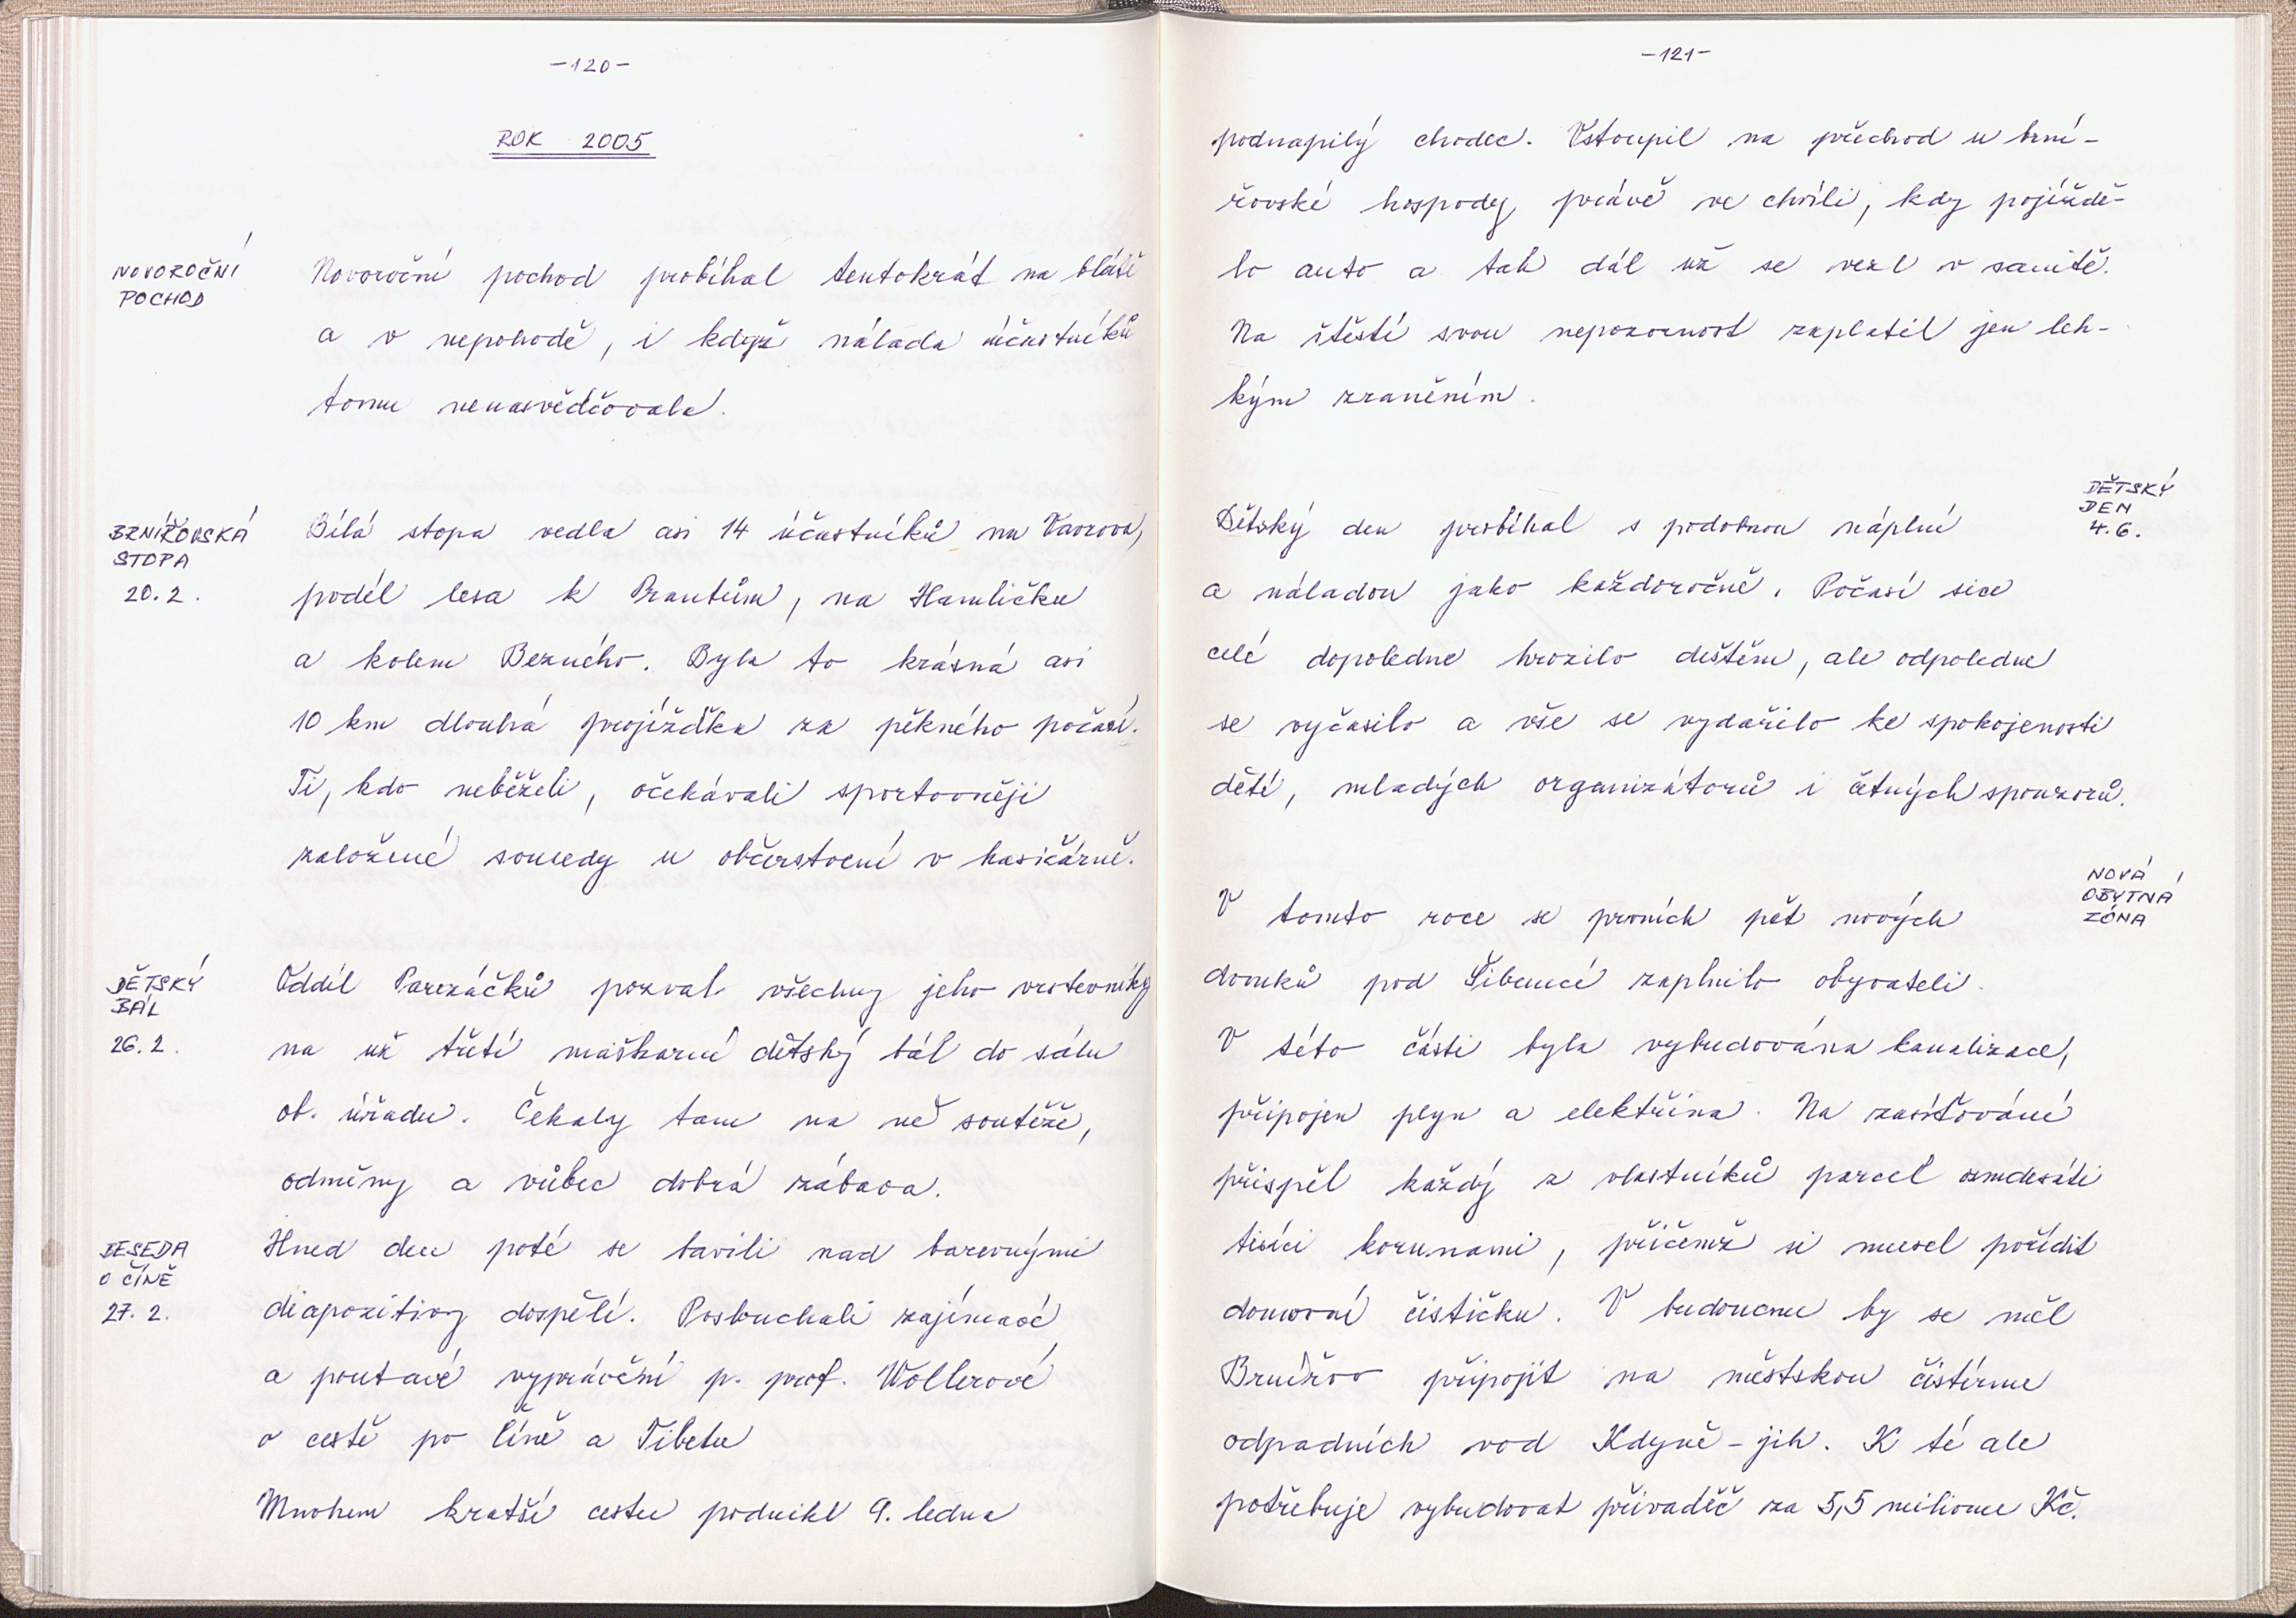 -120-
ROK 2005
NOVOROČNÍ
POCHOD
Novoroční pochod probíhal tentokrát na blátě
a v nepohodě, i když nálada účastníků
tomu nenasvědčovala.
BRNÍŘOVSKÁ
STOPA
20.2.
Bílá stopa vedla asi 14 účastníků na Vavrova,
podél lesa k Brantům, na Hamličku
a kolem Bezného. Byla to krásná asi
10 km dlouhá projížďka za pěkného počasí.
Ti, kdo neběželi, očekávali sportovněji
založené sousedy u občerstvení v hasičárně.
DĚTSKÝ
BÁL
26.2.
Oddíl Pařezáčků pozval všechny jeho vrstevníky
na už třetí maškarní dětský bál do sálu
ob. úřadu. Čekaly tam na ně soutěže,
odměny a vůbec dobrá zábava.
BESEDA
O ČÍNĚ
27.2.
Hned den poté se bavili nad barevnými
diapozitivy dospělí. Poslouchali zajímavé
a poutavé vyprávění p. prof. Wollerové
o cestě po Číně a Tibetu
Mnohem kratší cestu podnikl 9. ledna
-121-
podnapilý chodec. Vstoupil na přechod u brní-
řovské hospody právě ve chvíli, kdy pojíždě-
lo auto a tak dál už se vezl v sanitě.
Na štěstí svou nepozornost zaplatil jen leh-
kým zraněním.
DĚTSKÝ
DEN
4.6.
Dětský den probíhal s podobnou náplní
a náladou jako každoročně. Počasí sice
celé dopoledne hrozilo deštěm, ale odpoledne
se vyčasilo a vše se vydařilo ke spokojenosti
dětí, mladých organizátorů i četných sponzorů.
NOVÁ
OBYTNÁ
ZÓNA
V tomto roce se prvních pět nových
domků pod Šibenicí zaplnilo obyvateli.
V této části byla vybudována kanalizace,
připojen plyn a elektřina. Na zasíťování
přispěl každý z vlastníků parcel osmdesáti
tisíci korunami, přičemž si musel pořídit
domovní čističku. V budoucnu by se měl
Brnířov připojit na městskou čistírnu
odpadních vod Kdyně-jih. K té ale
potřebuje vybudovat přivaděč za 5,5 milionu Kč.